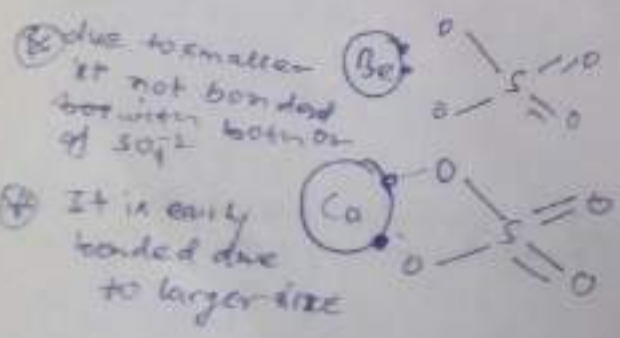 due to smaller
it not bonded
with both O
of SO4-2
Be
O
O
S
O
O
It is easily
bonded due
to larger size
Ca
O
O
S
O
O